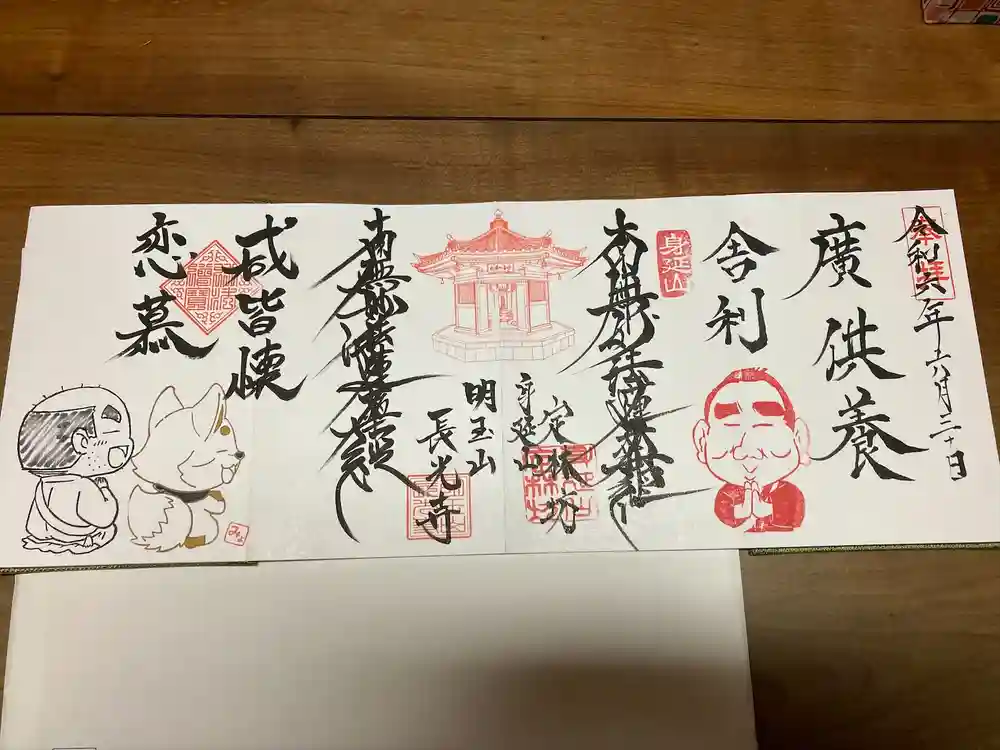 奉拝
令和六年六月三十日
廣供養
舎利
身延山
南無妙法蓮華経
身延山
定林坊
明玉山
長光寺
南無妙法蓮華経
咸皆懐
恋慕